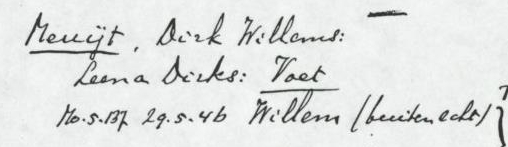 Meuijt, Dirk Willems:
Leena Dirks: Voet
Mo.5.137 29.5.46 Willem (buitenecht)